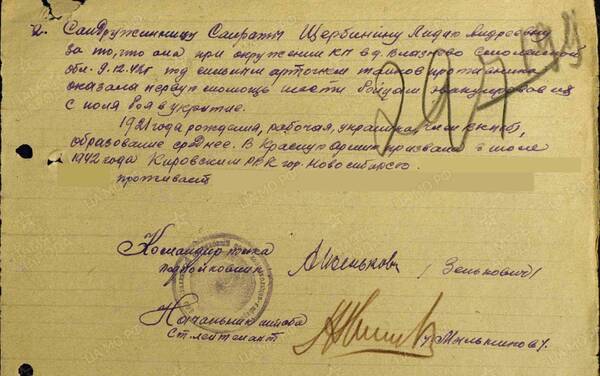 2. Сандружинницу Санроты Щербинину Лидию Андреевну
за то, что она при окружении КП в д. Влазново Смоленской
обл. 9.12.42г. под сильным артогнем танков противника
оказала первую помощь шести бойцам эвакуировав их
с поля боя в укрытие.
1921 года рождения, рабочая, украинка, член ВЛКСМ,
образование среднее. В Красную Армию призвана в июле
1942 года Кировским РВК гор. Новосибирск.
проживает
Командир полка
подполковник /Зенькович/
Начальник штаба
Ст. лейтенант /Мыльников/